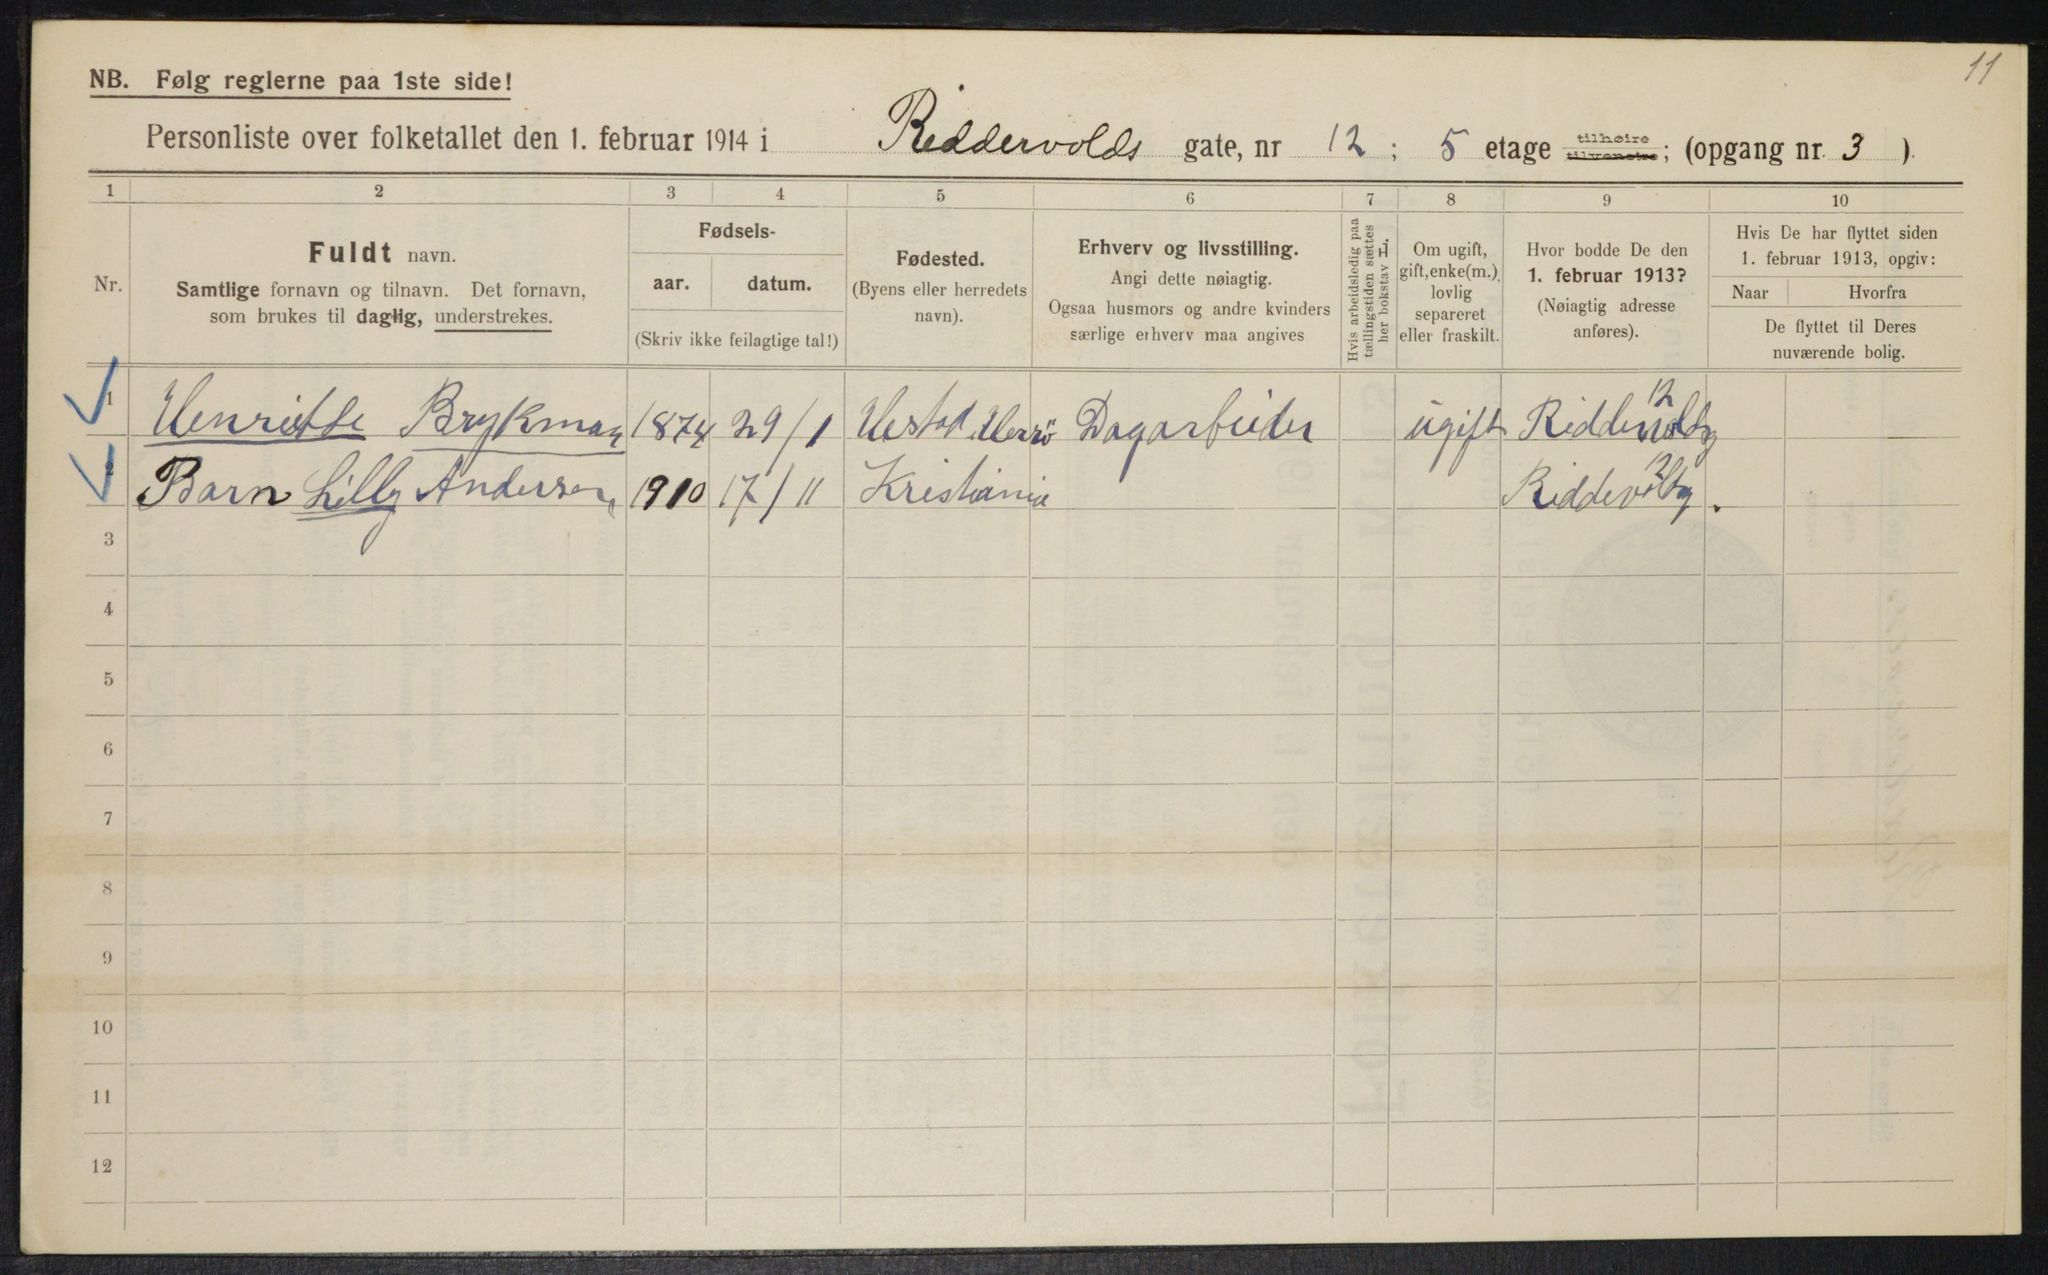 11
NB. Følg reglerne paa 1ste side!
Personliste over folketallet den 1. februar 1914 i Riddervolds gate, nr 12 ; 5 etage tilhøire tilvenstre; (opgang nr. 3 ).
1 2 3 4 5 6 7 8 9 10
Nr.
Fuldt navn.
Samtlige fornavn og tilnavn. Det fornavn,
som brukes til daglig, understrekes.
Fødsels-
aar. datum.
(Skriv ikke feilagtige tal!)
Fødested.
(Byens eller herredets
navn).
Erhverv og livsstilling.
Angi dette nøiagtig.
Ogsaa husmors og andre kvinders
særlige erhverv maa angives
Hvis arbeidsledig paa
tællingstiden sættes
her bokstav L.
Om ugift,
gift, enke(m.),
lovlig
separeret
eller fraskilt.
Hvor bodde De den
1. februar 1913?
(Nøiagtig adresse
anføres).
Hvis De har flyttet siden
1. februar 1913, opgiv:
Naar Hvorfra
De flyttet til Deres
nuværende bolig.
1 Henriette Brykman 1874 29/1 Dagarbeider ugift Riddervoldsg 12
2 Barn Lilly Andersen 1910 17/11 Kristiania Riddervoldsg 12.
3
4
5
6
7
8
9
10
11
12